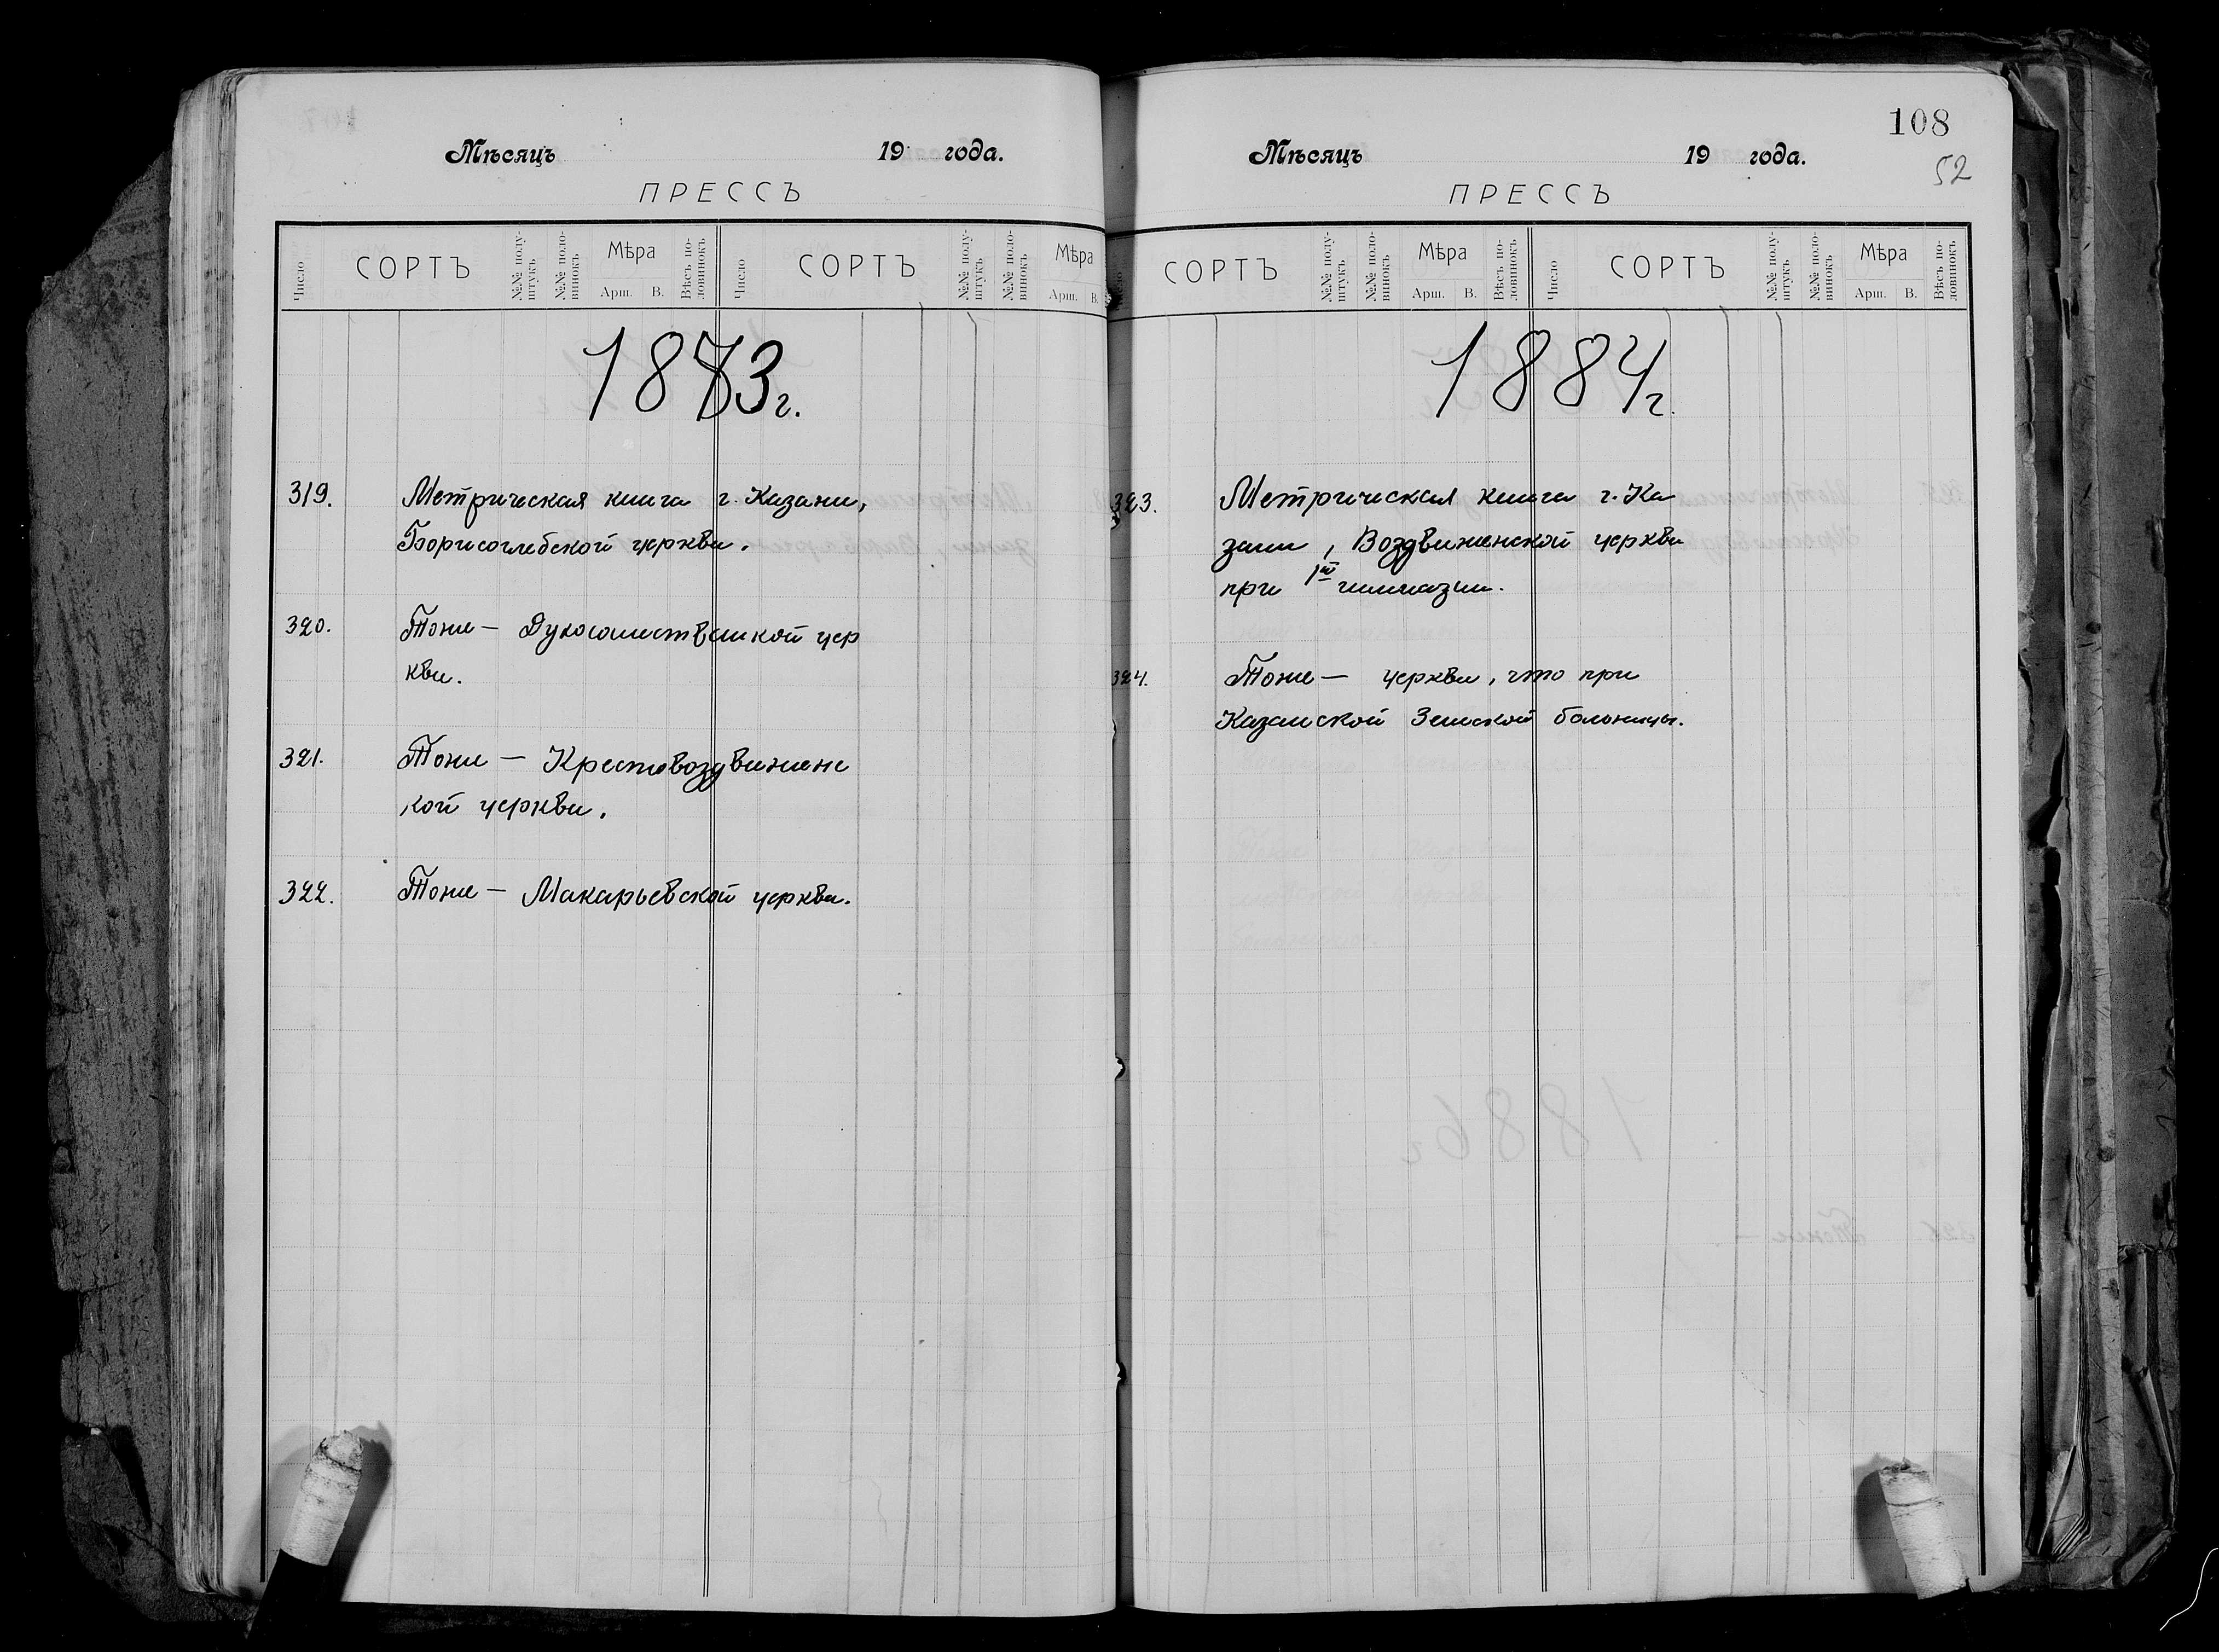 Мѣсяцъ 19 года.
ПРЕССЪ
Число СОРТЪ №№ полуштукъ №№ половинокъ Мѣра Арш. В. Вѣсъ половинокъ Число СОРТЪ №№ полуштукъ №№ половинокъ Мѣра Арш. В.
1883 г.
319. Метрическая книга г. Казани,
Борисоглебской церкви.
320. Тоже — Духосошественской цер
кви.
321. Тоже — Крестовоздвиженс
кой церкви.
322. Тоже — Макарьевской церкви.
108
52
Мѣсяцъ 19 года.
ПРЕССЪ
СОРТЪ №№ полуштукъ №№ половинокъ Мѣра Арш. В. Вѣсъ половинокъ Число СОРТЪ №№ полуштукъ №№ половинокъ Мѣра Арш. В. Вѣсъ половинокъ
1884 г.
323. Метрическая книга г. Ка
зани, Воздвиженской церкви
при 1ой гимназии.
324. Тоже — церкви, что при
Казанской Земской больницы.